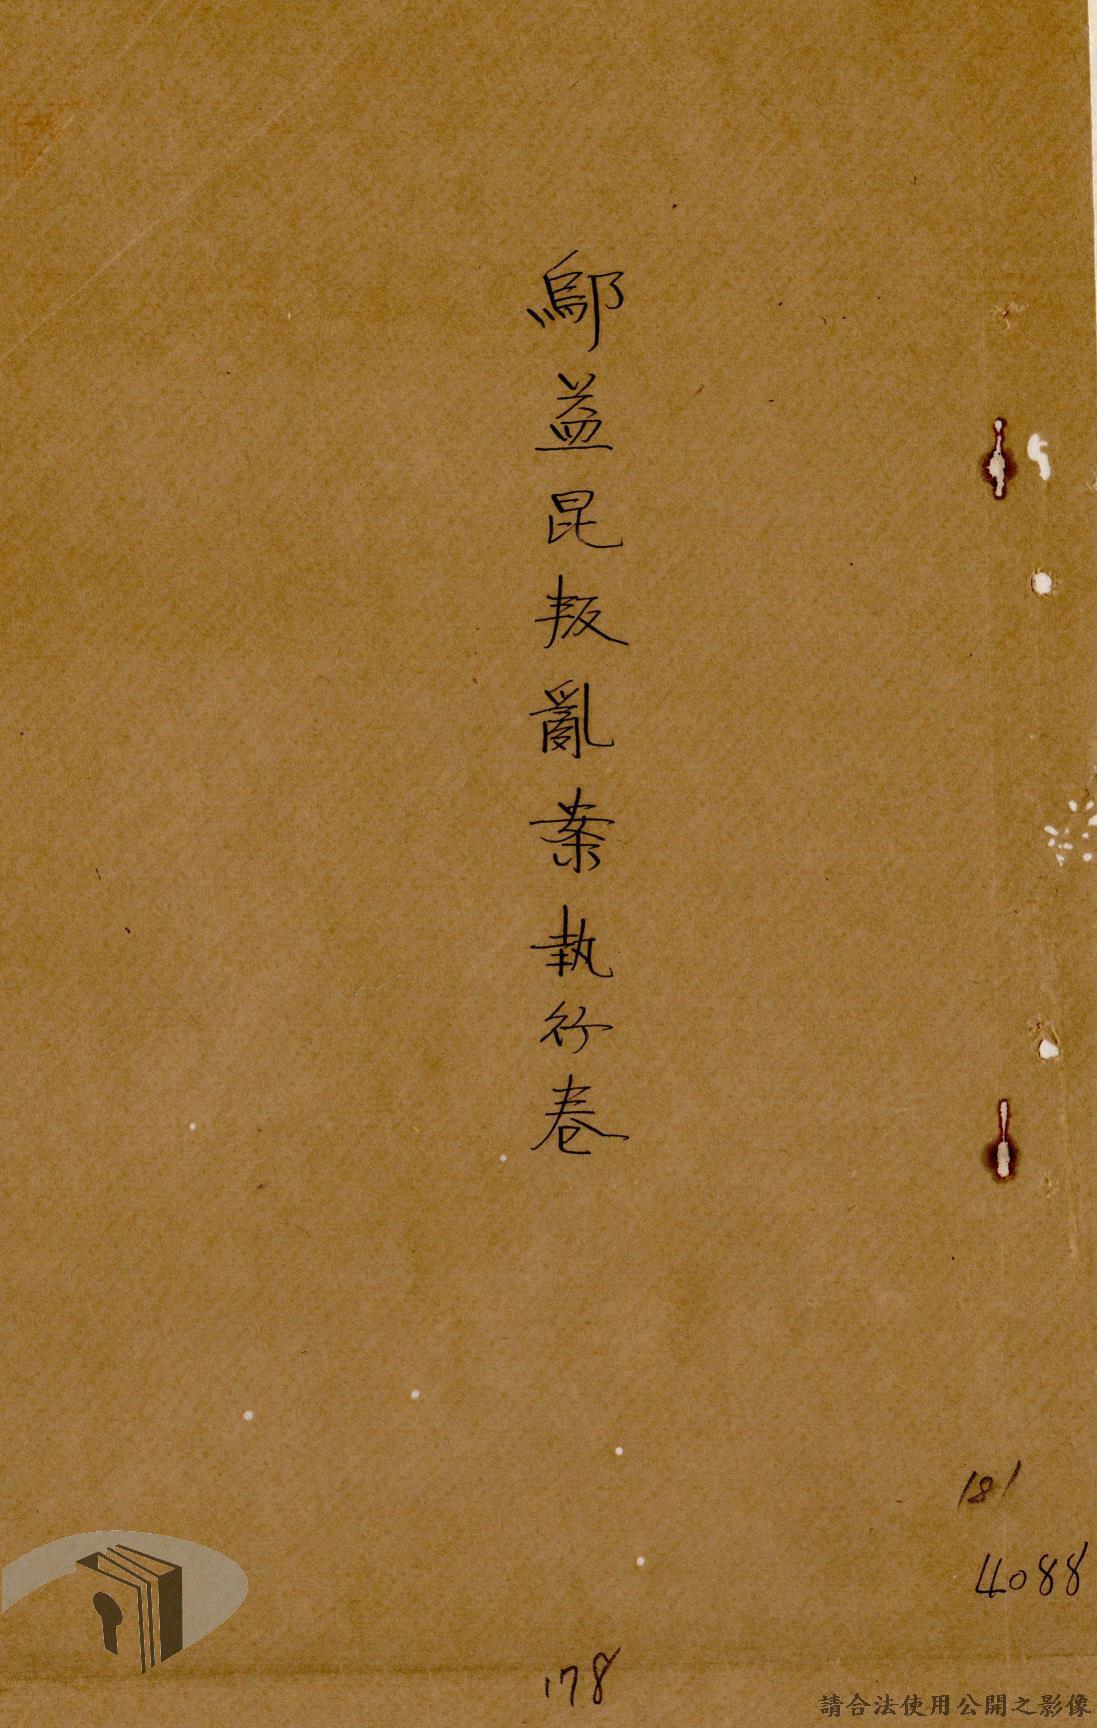 鄔益昆叛亂案執行卷
181
4088
178
請合法使用公開之影像